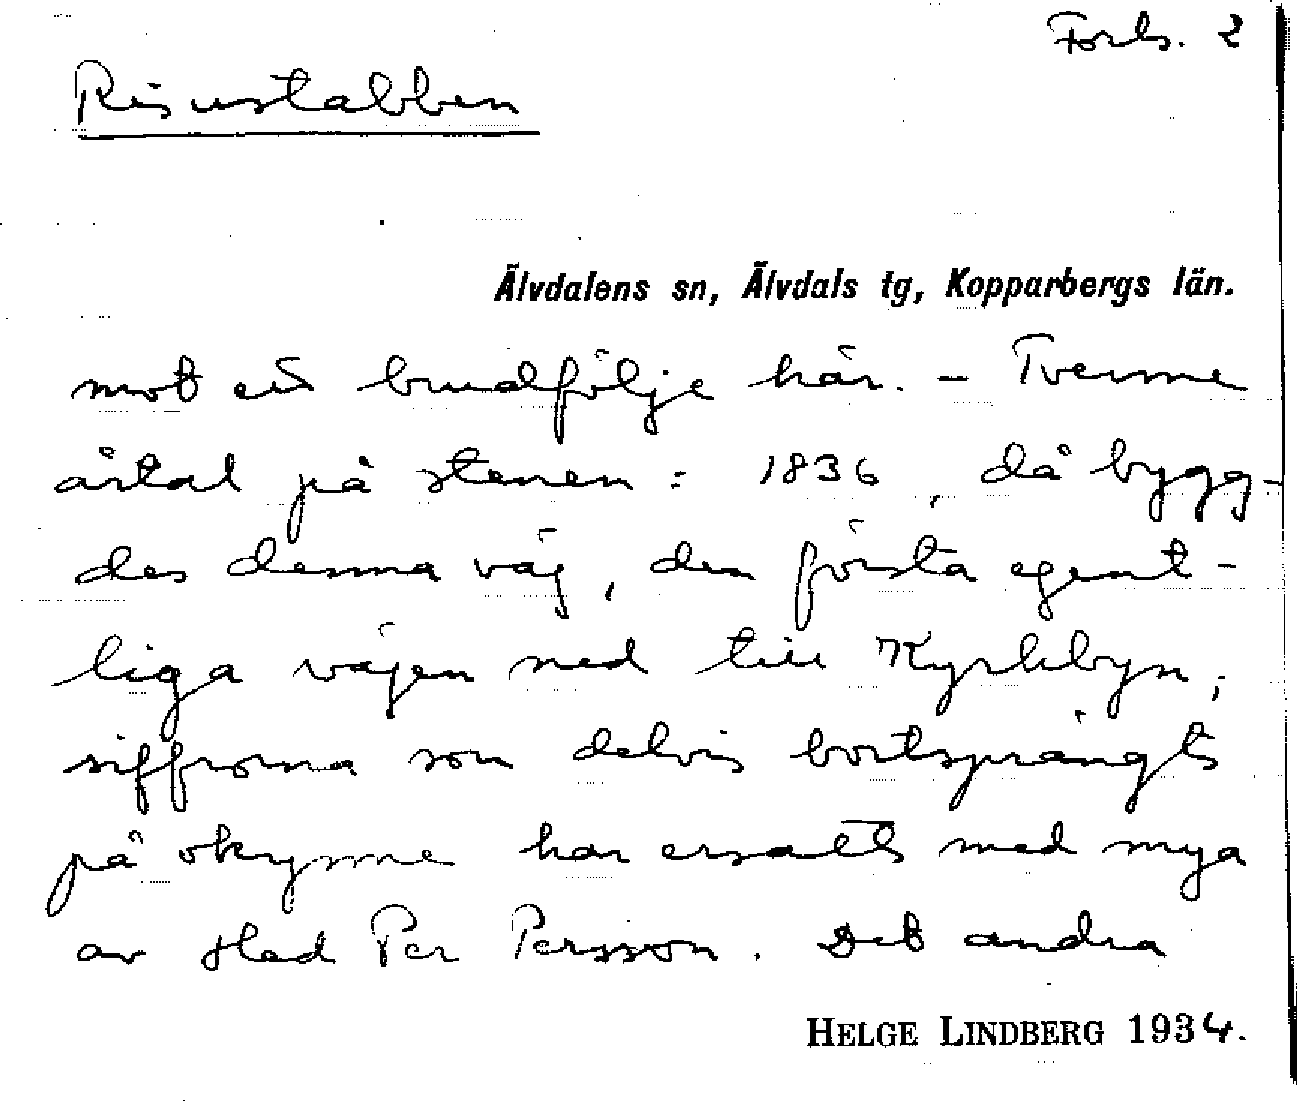 Forts. 2
Risustabben
Älvdalens sn, Älvdals tg, Kopparbergs län.
mot ett brudfölje här. – Tvenne
årtal på stenen: 1836, då bygg-
des denna väg, den första egent-
liga vägen ned till Kyrkbyn;
siffrorna som delvis bortsprängts
på okynne har ersatts med nya
av Hed Per Persson. Det andra
HELGE LINDBERG 1934.